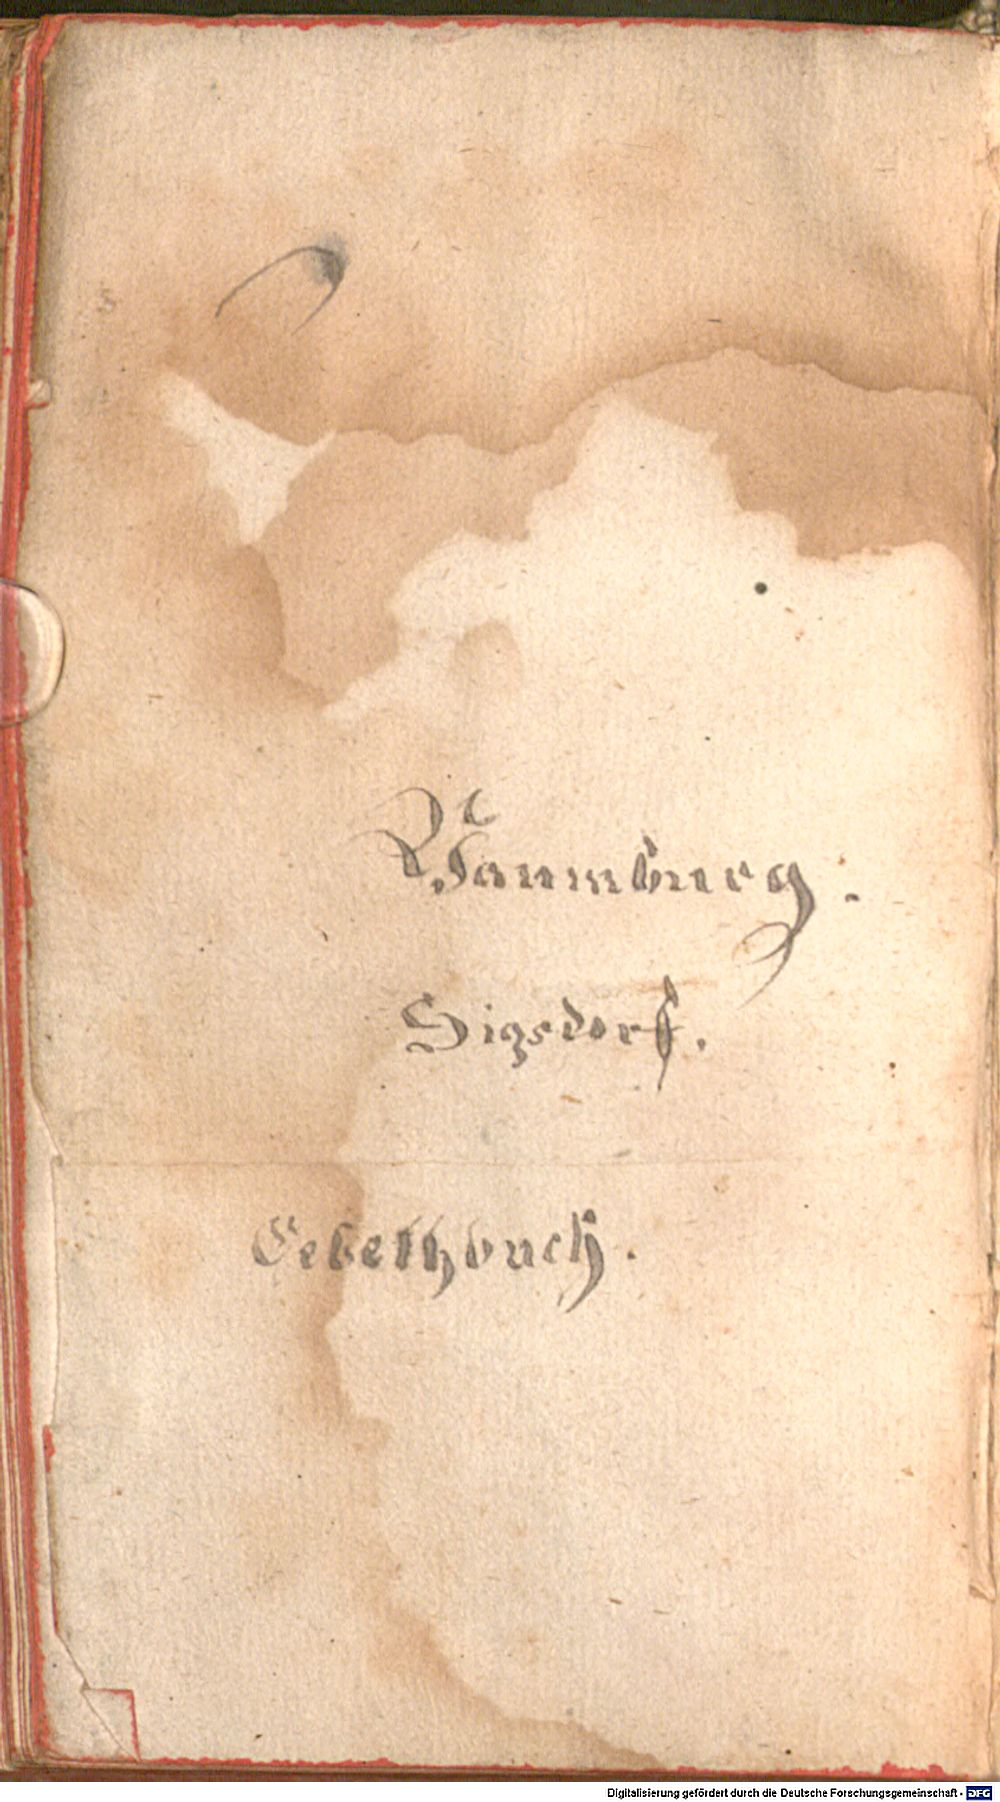 Naumburg.
Sigsdorf.
Gebethbuch.
Digitalisierung gefördert durch die Deutsche Forschungsgemeinschaft - DFG